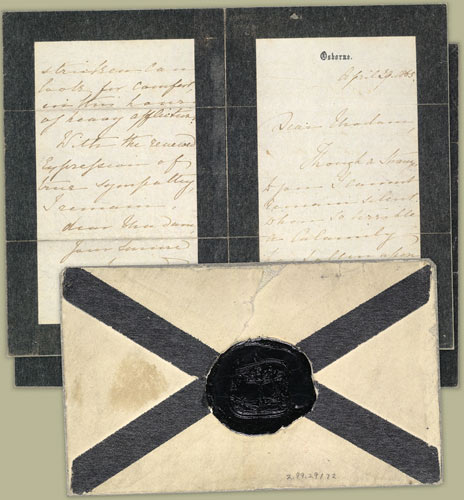 stricken can
look for comfort,
in this hour
of heavy affliction.
With the renewed
Expression of
true sympathy
I remain,
dear Madam,
Your Sincere
Osborne.
April 29. 1865.
Dear Madam,
Though a Stranger
to you I cannot
remain silent
when so terrible
a Calamity
has fallen upon